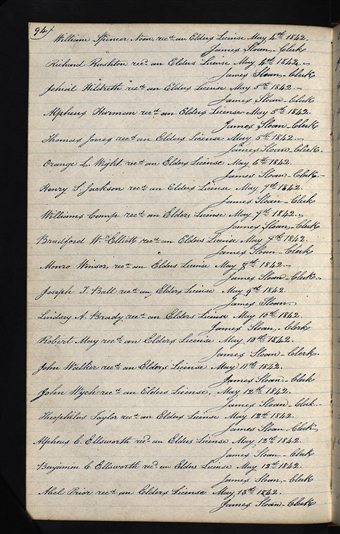 94
William Spencer Nixon rec.d an Elders License May 4th 1842.
James Sloan - Clerk
Richard Rushton rec.d an Elders License May 4th 1842.
James Sloan - Clerk
Jehiel Hildreth rec.d an Elders License May 5th 1842.
James Sloan - Clerk
Alpheus Harmon rec.d an Elders License May 5th 1842.
James Sloan - Clerk
Thomas Jones rec.d an Elders License May 5th 1842.
James Sloan - Clerk
Orange L. Wight rec.d an Elders License May 6th 1842.
James Sloan - Clerk
Henry S. Jackson rec.d an Elders License May 7th 1842.
James Sloan - Clerk
Williams Camp rec.d an Elders License May 7th 1842.
James Sloan - Clerk
Bradford W. Elliott rec.d an Elders License May 7th 1842.
James Sloan - Clerk
Winsor rec.d an Elders License May 8th 1842
James Sloan - Clerk
Joseph T. Ball rec.d an Elders License May 9th 1842.
James Sloan
Lindsey A. Brady rec.d an Elders License May 10th 1842.
James Sloan - Clerk
Robert May rec.d an Elders License May 10th 1842.
James Sloan - Clerk
John Walker rec.d an Elders License May 11th 1842.
James Sloan - Clerk
John Wych rec.d an Elders License, May 12th 1842.
James Sloan - Clerk
Theophilus Taylor rec.d an Elders License May 12th 1842.
James Sloan - Clerk
Alpheus C. Ellsworth rec.d an Elders License May 12th 1842.
James Sloan - Clerk
Benjamin C. Ellsworth rec.d an Elders License May 12th 1842.
James Sloan - Clerk
Abel Prior rec.d an Elders License May 13th 1842.
James Sloan - Clerk